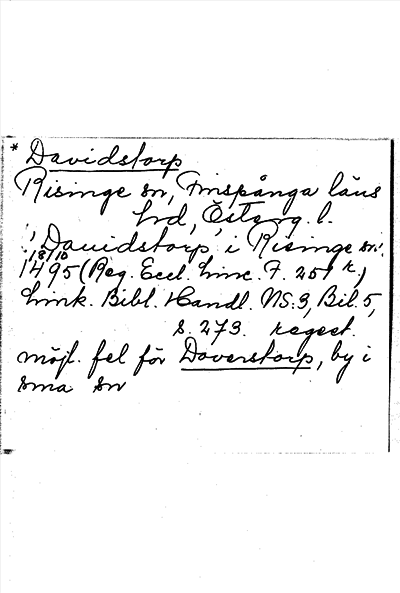 * Davidstorp
Risinge sn, Finspånga läns
hrd, Österg. l.
"Dauidstorp i Risinge sn."
18/10
1495 (Reg. Eccl. Linc. F. 251 r.)
Link. Bibl. Handl. NS:3, Bil. 5,
s. 273. regest.
möjl. fel för Doverstorp, by i
sma sn